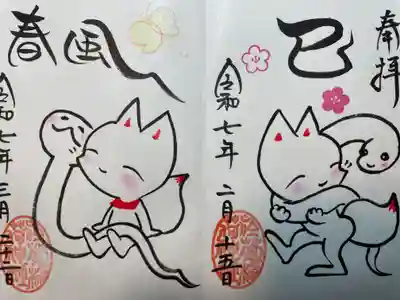 奉拝
巳
令和七年 二月 十五日
春風
令和七年 三月 二十二日